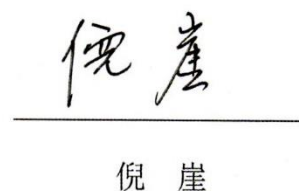 倪崖
倪 崖